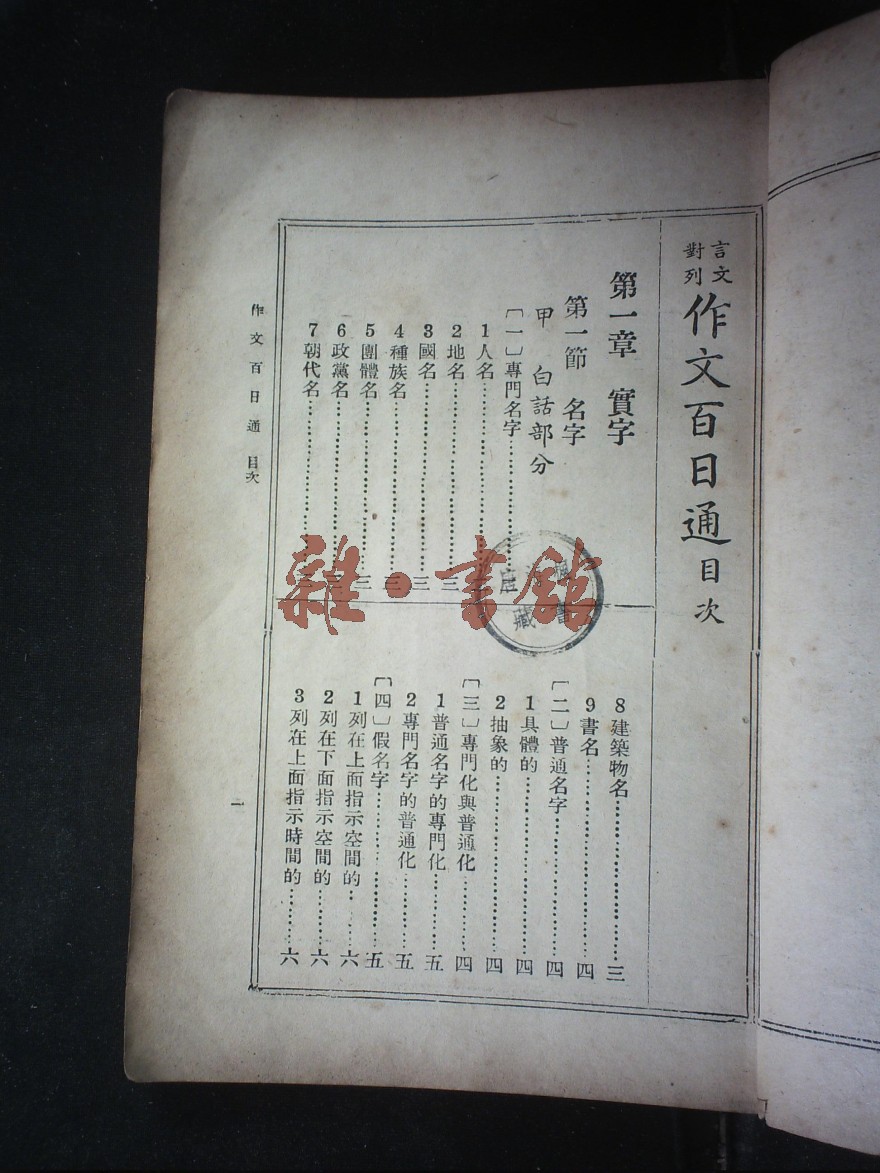 言文對列作文百日通目次
第一章　實字
第一節　名字
甲　白話部分
〔一〕專門名字……………
1人名……………
2地名……………三
3國名……………三
4種族名……………三
5團體名……………三
6政黨名……………三
7朝代名……………三
8建築物名……………三
9書名……………四
〔二〕普通名字……………四
1具體的……………四
2抽象的……………四
〔三〕專門化與普通化……………四
1普通名字的專門化……………五
2專門名字的普通化……………五
〔四〕假名字……………五
1列在上面指示空間的……………六
2列在下面指示空間的……………六
3列在上面指示時間的……………六
作文百日通　目次
一
雜·書館
藏書